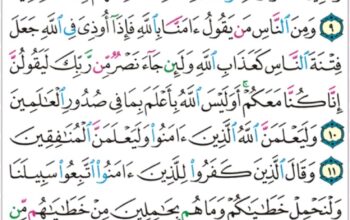 ٩ وَمِنَ ٱلنَّاسِ مَن يَقُولُ ءَامَنَّا بِٱللَّهِ فَإِذَآ أُوذِىَ فِى ٱللَّهِ جَعَلَ
فِتْنَةَ ٱلنَّاسِ كَعَذَابِ ٱللَّهِ وَلَئِن جَآءَ نَصْرٌ مِّن رَّبِّكَ لَيَقُولُنَّ
إِنَّا كُنَّا مَعَكُمْ ۚ أَوَلَيْسَ ٱللَّهُ بِأَعْلَمَ بِمَا فِى صُدُورِ ٱلْعَٰلَمِينَ
١٠ وَلَيَعْلَمَنَّ ٱللَّهُ ٱلَّذِينَ ءَامَنُوا۟ وَلَيَعْلَمَنَّ ٱلْمُنَٰفِقِينَ
١١ وَقَالَ ٱلَّذِينَ كَفَرُوا۟ لِلَّذِينَ ءَامَنُوا۟ ٱتَّبِعُوا۟ سَبِيلَنَا
وَلْنَحْمِلْ خَطَٰيَٰكُمْ وَمَا هُم بِحَٰمِلِينَ مِنْ خَطَٰيَٰهُم مِّن